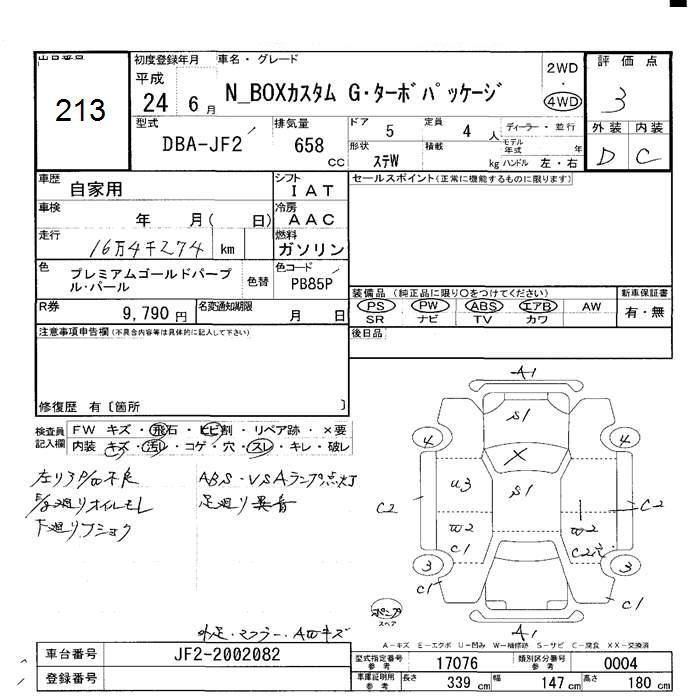 出品番号
213
初度登録年月
平成
24 6 月
車名・グレード
N_BOXカスタム G・ターボパッケージ
2WD
・
4WD
評価点
3
型式
DBA-JF2
排気量
658
cc
ドア
5
定員
4 人
ディーラー・並行
形状
ステW
積載
kg
モデル年式
年
ハンドル 左・右
外装 内装
D C
車歴
自家用
シフト
I A T
車検
年 月( 日)
冷房
A A C
走行
16万4千274 km
燃料
ガソリン
色
プレミアムゴールドパープ
ル・パール
色替
色コード
PB85P
R券
9,790 円
名変通知期限
月 日
セールスポイント(正常に機能するものに限ります)
装備品 (純正品に限り○をつけてください)
PS PW ABS エアB AW
SR ナビ TV カワ
新車保証書
有・無
後日品
注意事項申告欄(不具合内容等は具体的に記入して下さい)
修復歴 有〔箇所 〕
検査員
記入欄
FW キズ・飛石・ヒビ割・リペア跡・×要
内装 キズ・汚れ・コゲ・穴・スレ・キレ・破レ
ABS・VSAランプ点灯
足廻り異音
下廻りフショク
A1
S1
4 4
X
U3
S1
C2 C2
W2 W2
C1
3 3
C1 C1
A1
スペア
A-キズ E-エクボ U-凹み W-補修跡 S-サビ C-腐食 XX-交換済
車台番号
JF2-2002082
登録番号
型式指定番号
参考
17076
類別区分番号
参考
0004
車庫証明用
参考
長さ 339 cm
幅 147 cm
高さ 180 cm